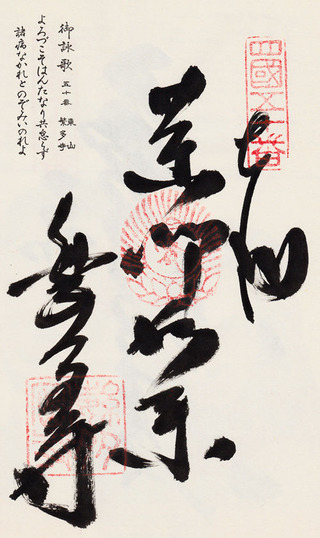 四國五十番
奉納
薬師如来
繁多寺
御詠歌 五十番 東山
繁多寺
よろづこそはんたなり共怠らず
諸病なかれとのぞみいのれよ